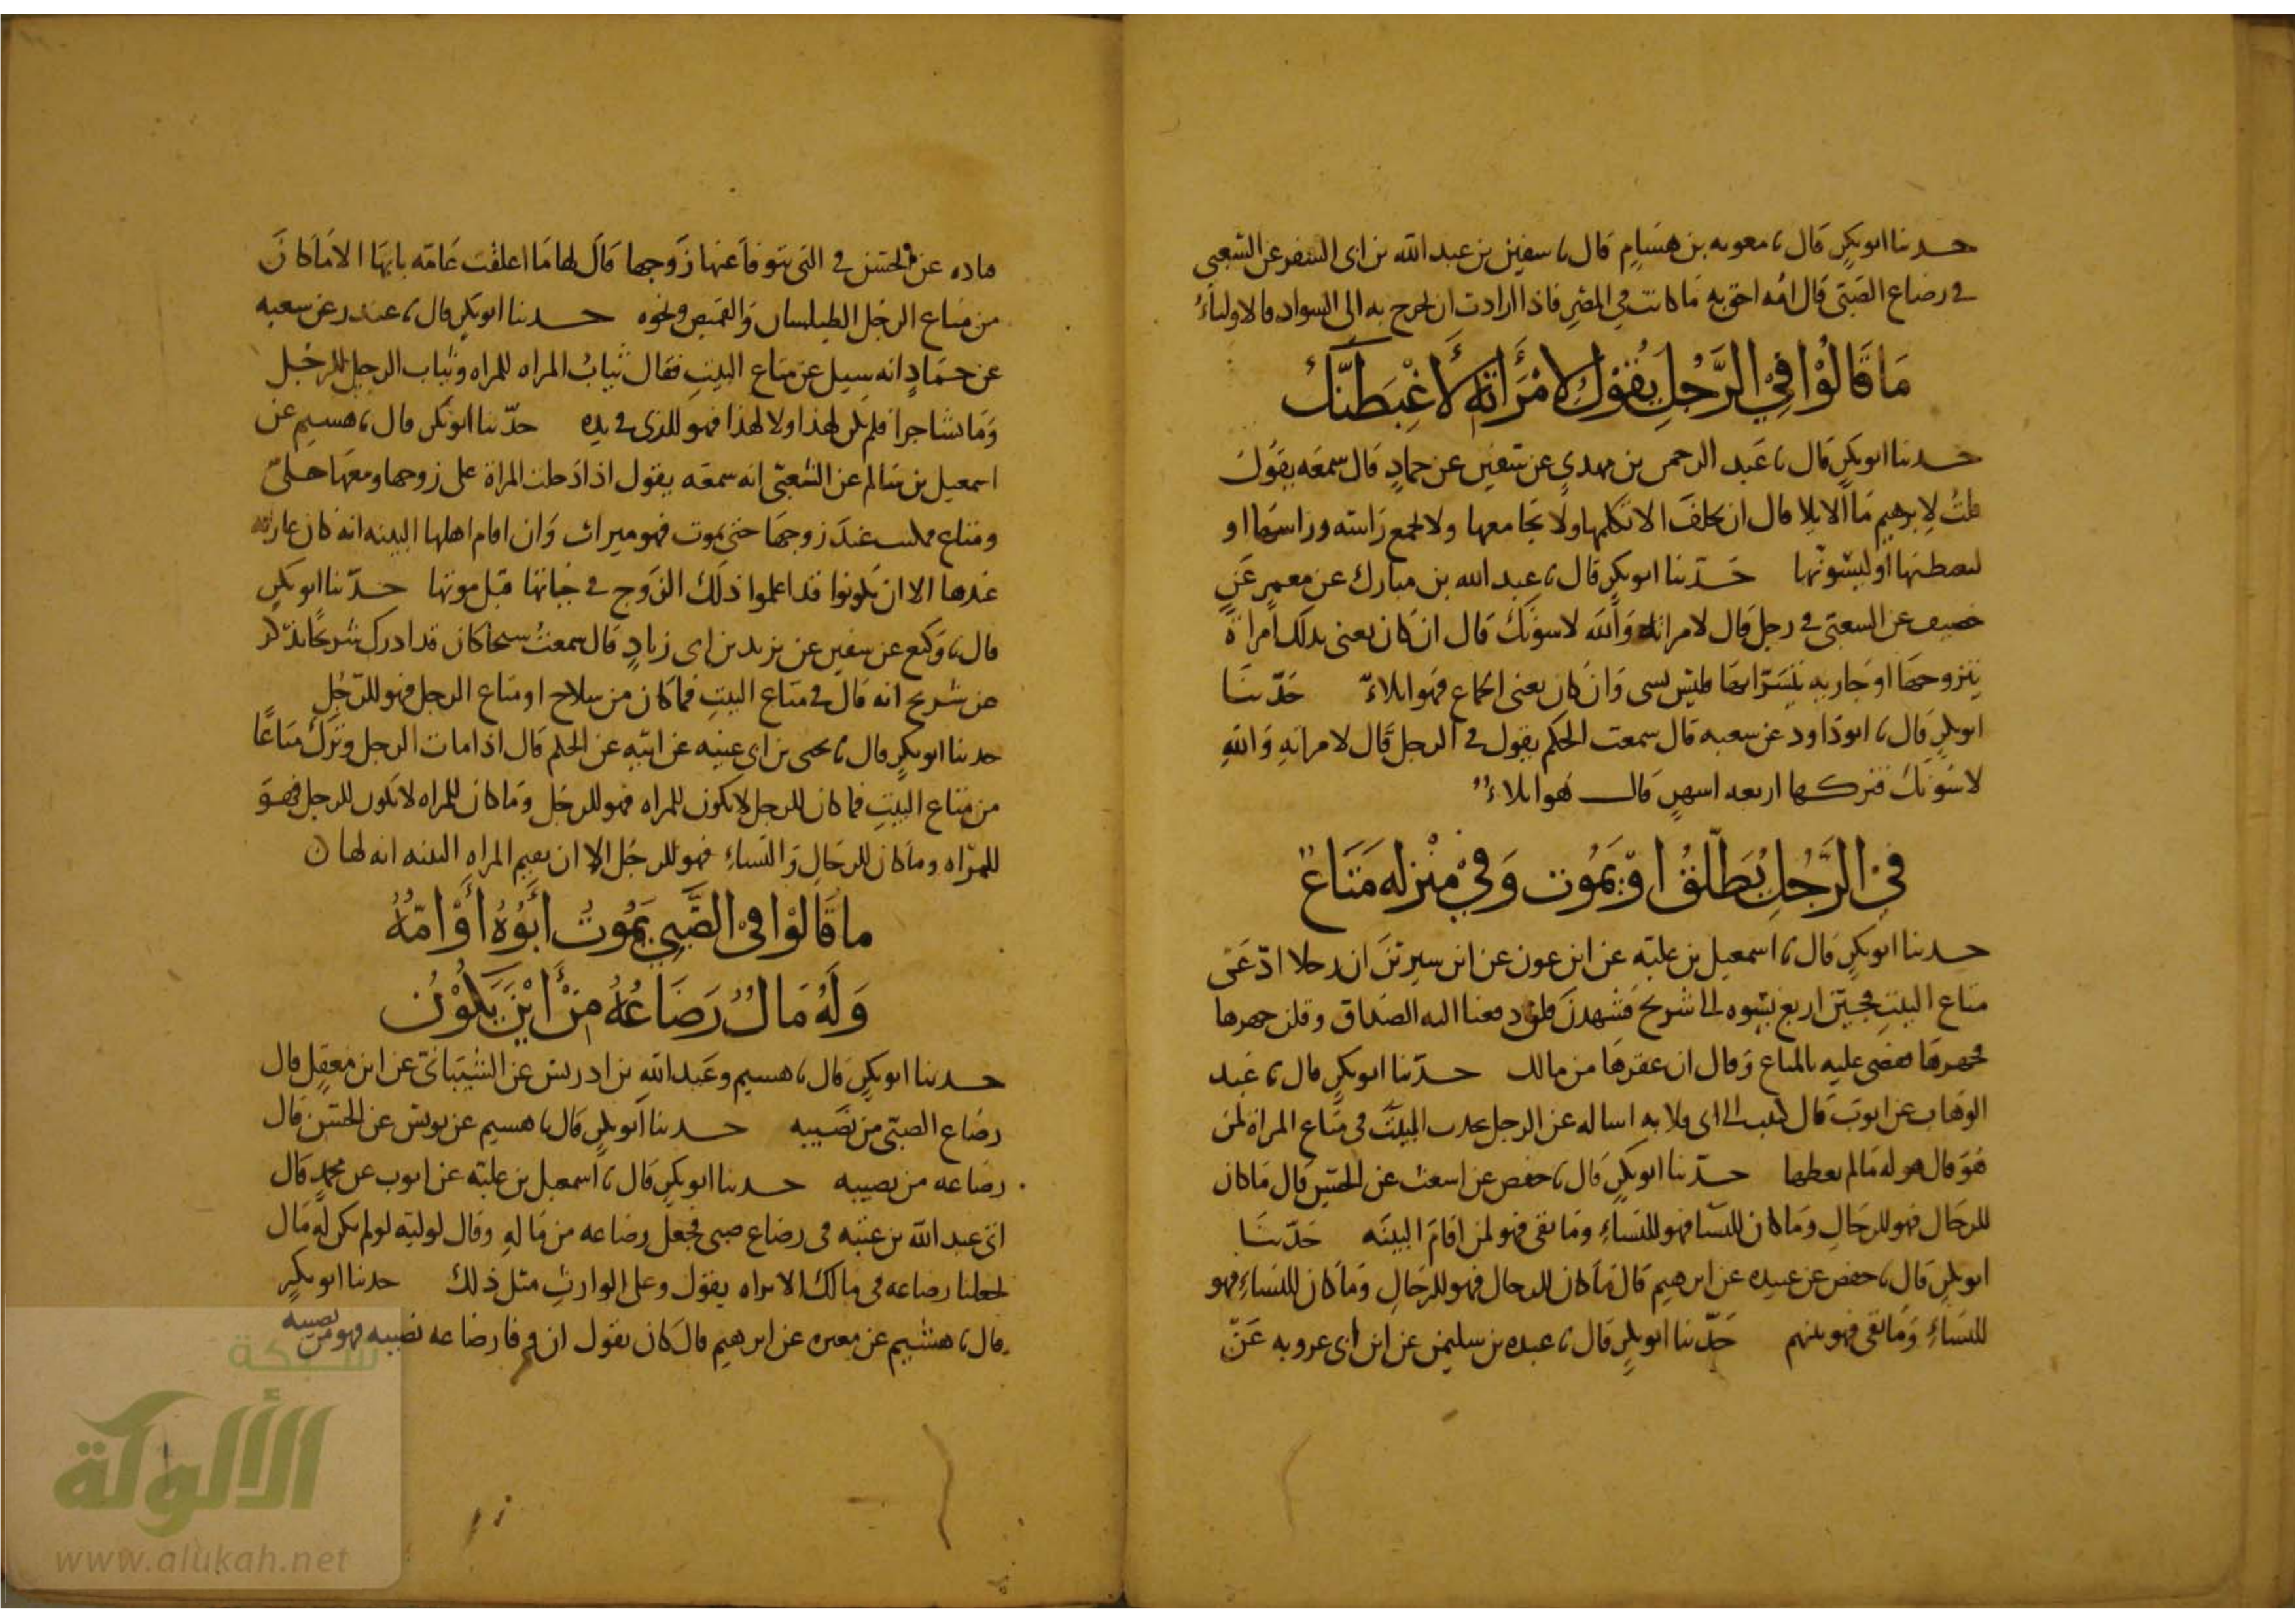 حدثنا ابو بكر قال نا معوية بن هشام قال نا سفين بن عبد الله بن ابى السفر عن الشعبي
في رضاع الصبي قال امه احق به ما كانت في المصر فاذا ارادت ان تخرج به الى السواد فالاولياء
مَا قَالُوْا فِي الرَّجُلِ يَقُوْلُ لامْرَأَتِهِ لأَغِيْظَنَّكِ
حدثنا ابو بكر قال نا عبد الرحمن بن مهدي عن سفين عن حماد قال سمعه يقول
قلت لابرهيم ما الايلا قال ان يحلف الا تكلمها ولا يجامعها ولا يجمع راسه وراسها او
ليغيظنها او ليسونها حدثنا ابو بكر قال نا عبد الله بن مبارك عن معمر عن
خصيف عن الشعبي في رجل قال لامراته والله لاسونك قال ان كان يعني بذلك امراة
يتزوجها او جارية يتسراها فليس بشى وان كان يعنى الجماع فهو ايلاء حدثنا
ابو بكر قال نا ابو داود عن شعبه قال سمعت الحكم يقول في الرجل قال لامراته والله
لاسونك فتركها اربعه اشهر قال هو ايلاء
فِي الرَّجُلِ يُطَلِّقُ اوْ يَمُوت وَفِيْ مِنْزِله مَتَاعٌ
حدثنا ابو بكر قال نا اسمعيل بن عليه عن ابن عون عن ابن سيرين ان رجلا ادعى
متاع البيت فجئن اربع نسوه الى شريح فشهدن فلن دفعنا اليه الصداق وقلن جهزها
فجهزها فقضى عليه بالمتاع وقال ان عقرها من مالك حدثنا ابو بكر قال نا عبد
الوهاب عن ايوب قال كتبت الى ابى قلابه اساله عن الرجل البيت في متاع المراة لمن
هو قال هو له مالم يعطها حدثنا ابو بكر قال نا حفص عن اشعث عن الحسن قال ما كان
للرجال فهو للرجال وما كان للنسا فهو للنساء وما بقى فهو لمن اقام البينه حدثنا
ابو بكر قال نا حفص عن عبيده عن ابرهيم قال ما كان للرجال فهو للرجال وما كان للنساء فهو
للنساء وما بقى فهو بينهم حدثنا ابو بكر قال نا عبده بن سليمن عن ابن ابى عروبه عن
قتاده عن الحسن في التى يتوفا عنها زوجها قال لها ما اغلقت عليه بابها الا ما كان
من متاع الرجل الطيلسان والقميص ونحوه حدثنا ابو بكر قال نا غندر عن شعبه
عن حماد انه سيل عن متاع البيت فقال ثياب المراه للمراه وثياب الرجل للرجل
وما تشاجرا فلم يكن لهذا ولا لهذا فهو للذى في يده حدثنا ابو بكر قال نا هشيم عن
اسمعيل بن سالم عن الشعبى انه سمعه يقول اذا دخلت المراة على زوجها ومعها حلى
ومتاع فمكث عند زوجها حتى يموت فهو ميراث وان اقام اهلها البينه انه كان عاريه
عندها الا ان يكونوا قد اعلموا ذلك الزوج في حياتها قبل موتها حدثنا ابو بكر
قال نا وكيع عن سفين عن يزيد بن ابى زياد قال سمعت شيخا كان قد ادرك شريحا يذكر
عن شريح انه قال في متاع البيت فما كان من سلاح او متاع الرجل فهو للرجل
حدثنا ابو بكر قال نا يحيى بن ابى غنيه عن ابيه عن الحكم قال اذا مات الرجل وترك متاعا
من متاع البيت فما كان للرجل لا يكون للمراه فهو للرجل وما كان للمراه لا يكون للرجل فهو
للمراه وما كان للرجال والنساء فهو للرجل الا ان يقيم المراه البينه انه لها
ما قَالُوْا فِي الصَّبِي يَمُوتُ أَبُوْهُ أَوْ امّهُ
وَلَهُ مَالٌ رَضَاعُهُ مِنْ أَيْنَ يَكُوْنُ
حدثنا ابو بكر قال نا هشيم وعبد الله بن ادريس عن الشيبانى عن ابن معقل قال
رضاع الصبى من نصيبه حدثنا ابو بكر قال نا هشيم عن يونس عن الحسن قال
رضاعه من نصيبه حدثنا ابو بكر قال نا اسمعيل بن عليه عن ايوب عن محمد قال
اتى عبد الله بن عتبه فى رضاع صبى فجعل رضاعه من ماله وقال لوليه لو لم يكن له مال
لجعلنا رضاعه فى مالك الا تراه يقول وعلى الوارث مثل ذلك حدثنا ابو بكر
قال نا هشيم عن مغيره عن ابرهيم قال كان يقول ان وفا رضاعه نصيبه فهو من نصيبه
شبكة
الألوكة
www.alukah.net